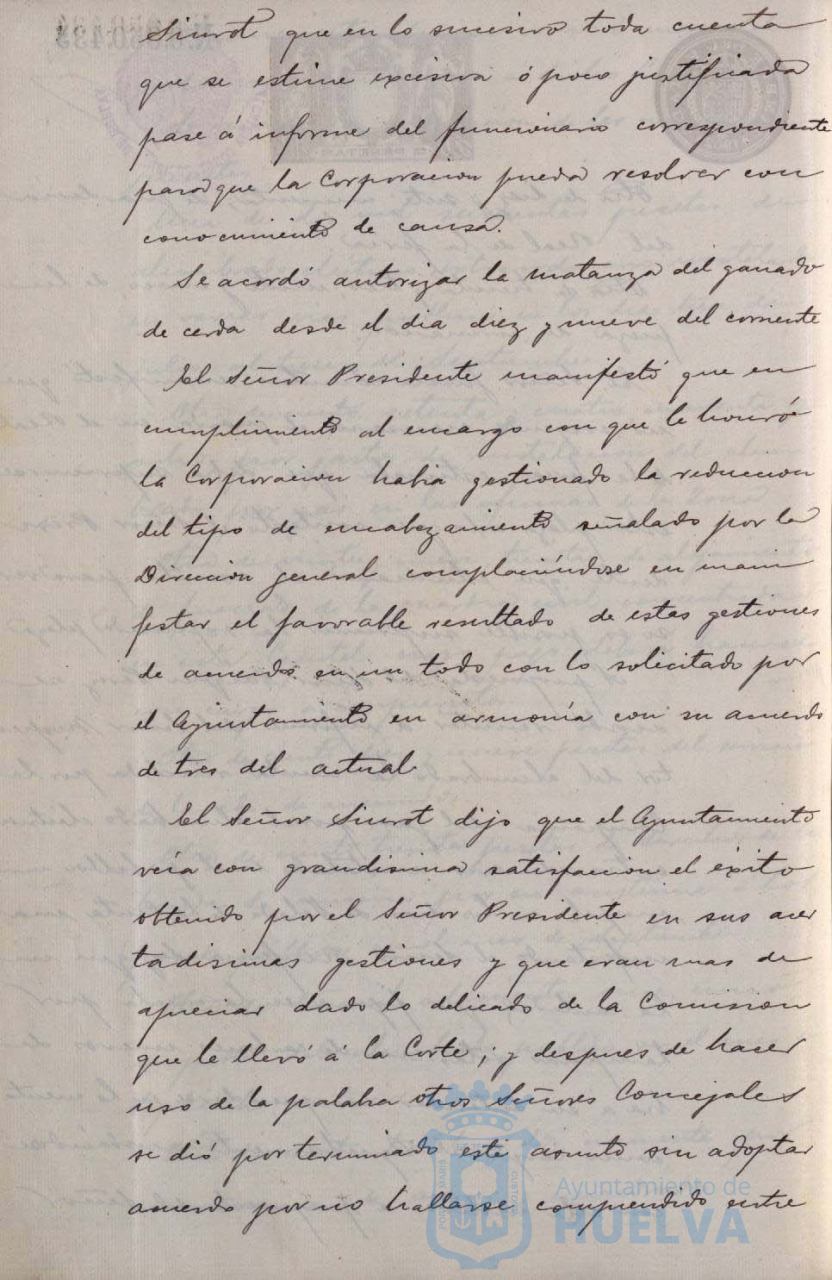 Siurot que en lo sucesivo toda cuenta
que se estime excisiva ó poco justificada
pase á informe del funcionario correspondiente
para que la Corporacion pueda resolver con
conocimiento de causa.
Se acordó autorizar la matanza del ganado
de cerda desde el dia diez y nueve del corriente
El Señor Presidente manifestó que en
cumplimiento al encargo con que le honró
la Corporacion habia gestionado la reduccion
del tipo de encabezamiento señalado por la
Direccion general complaciéndose en mani
festar el favorable resultado de estas gestiones
de acuerdo en un todo con lo solicitado por
el Ayuntamiento en armonía con su acuerdo
de tres del actual.
El Señor Siurot dijo que el Ayuntamiento
veia con grandisima satisfaccion el éxito
obtenido por el Señor Presidente en sus acer
tadisimas gestiones y que eran mas de
apreciar dado lo delicado de la Comision
que le llevó á la Corte; y despues de hacer
uso de la palabra otros Señores Concejales
se dió por terminado este asunto sin adoptar
acuerdo por no hallarse comprendido entre
Ayuntamiento de
HUELVA